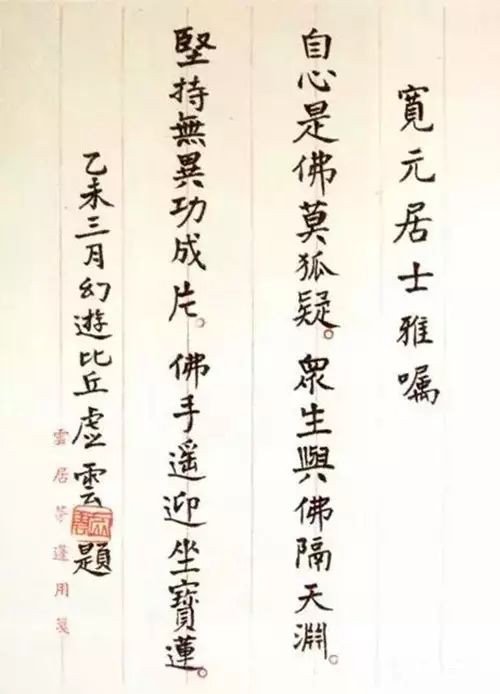 寬元居士雅嘱
自心是佛莫狐疑。衆生與佛隔天淵。
堅持無異功成片。佛手遥迎坐寶蓮。
乙未三月幻遊比丘虚雲題
雲居茅蓬用箋